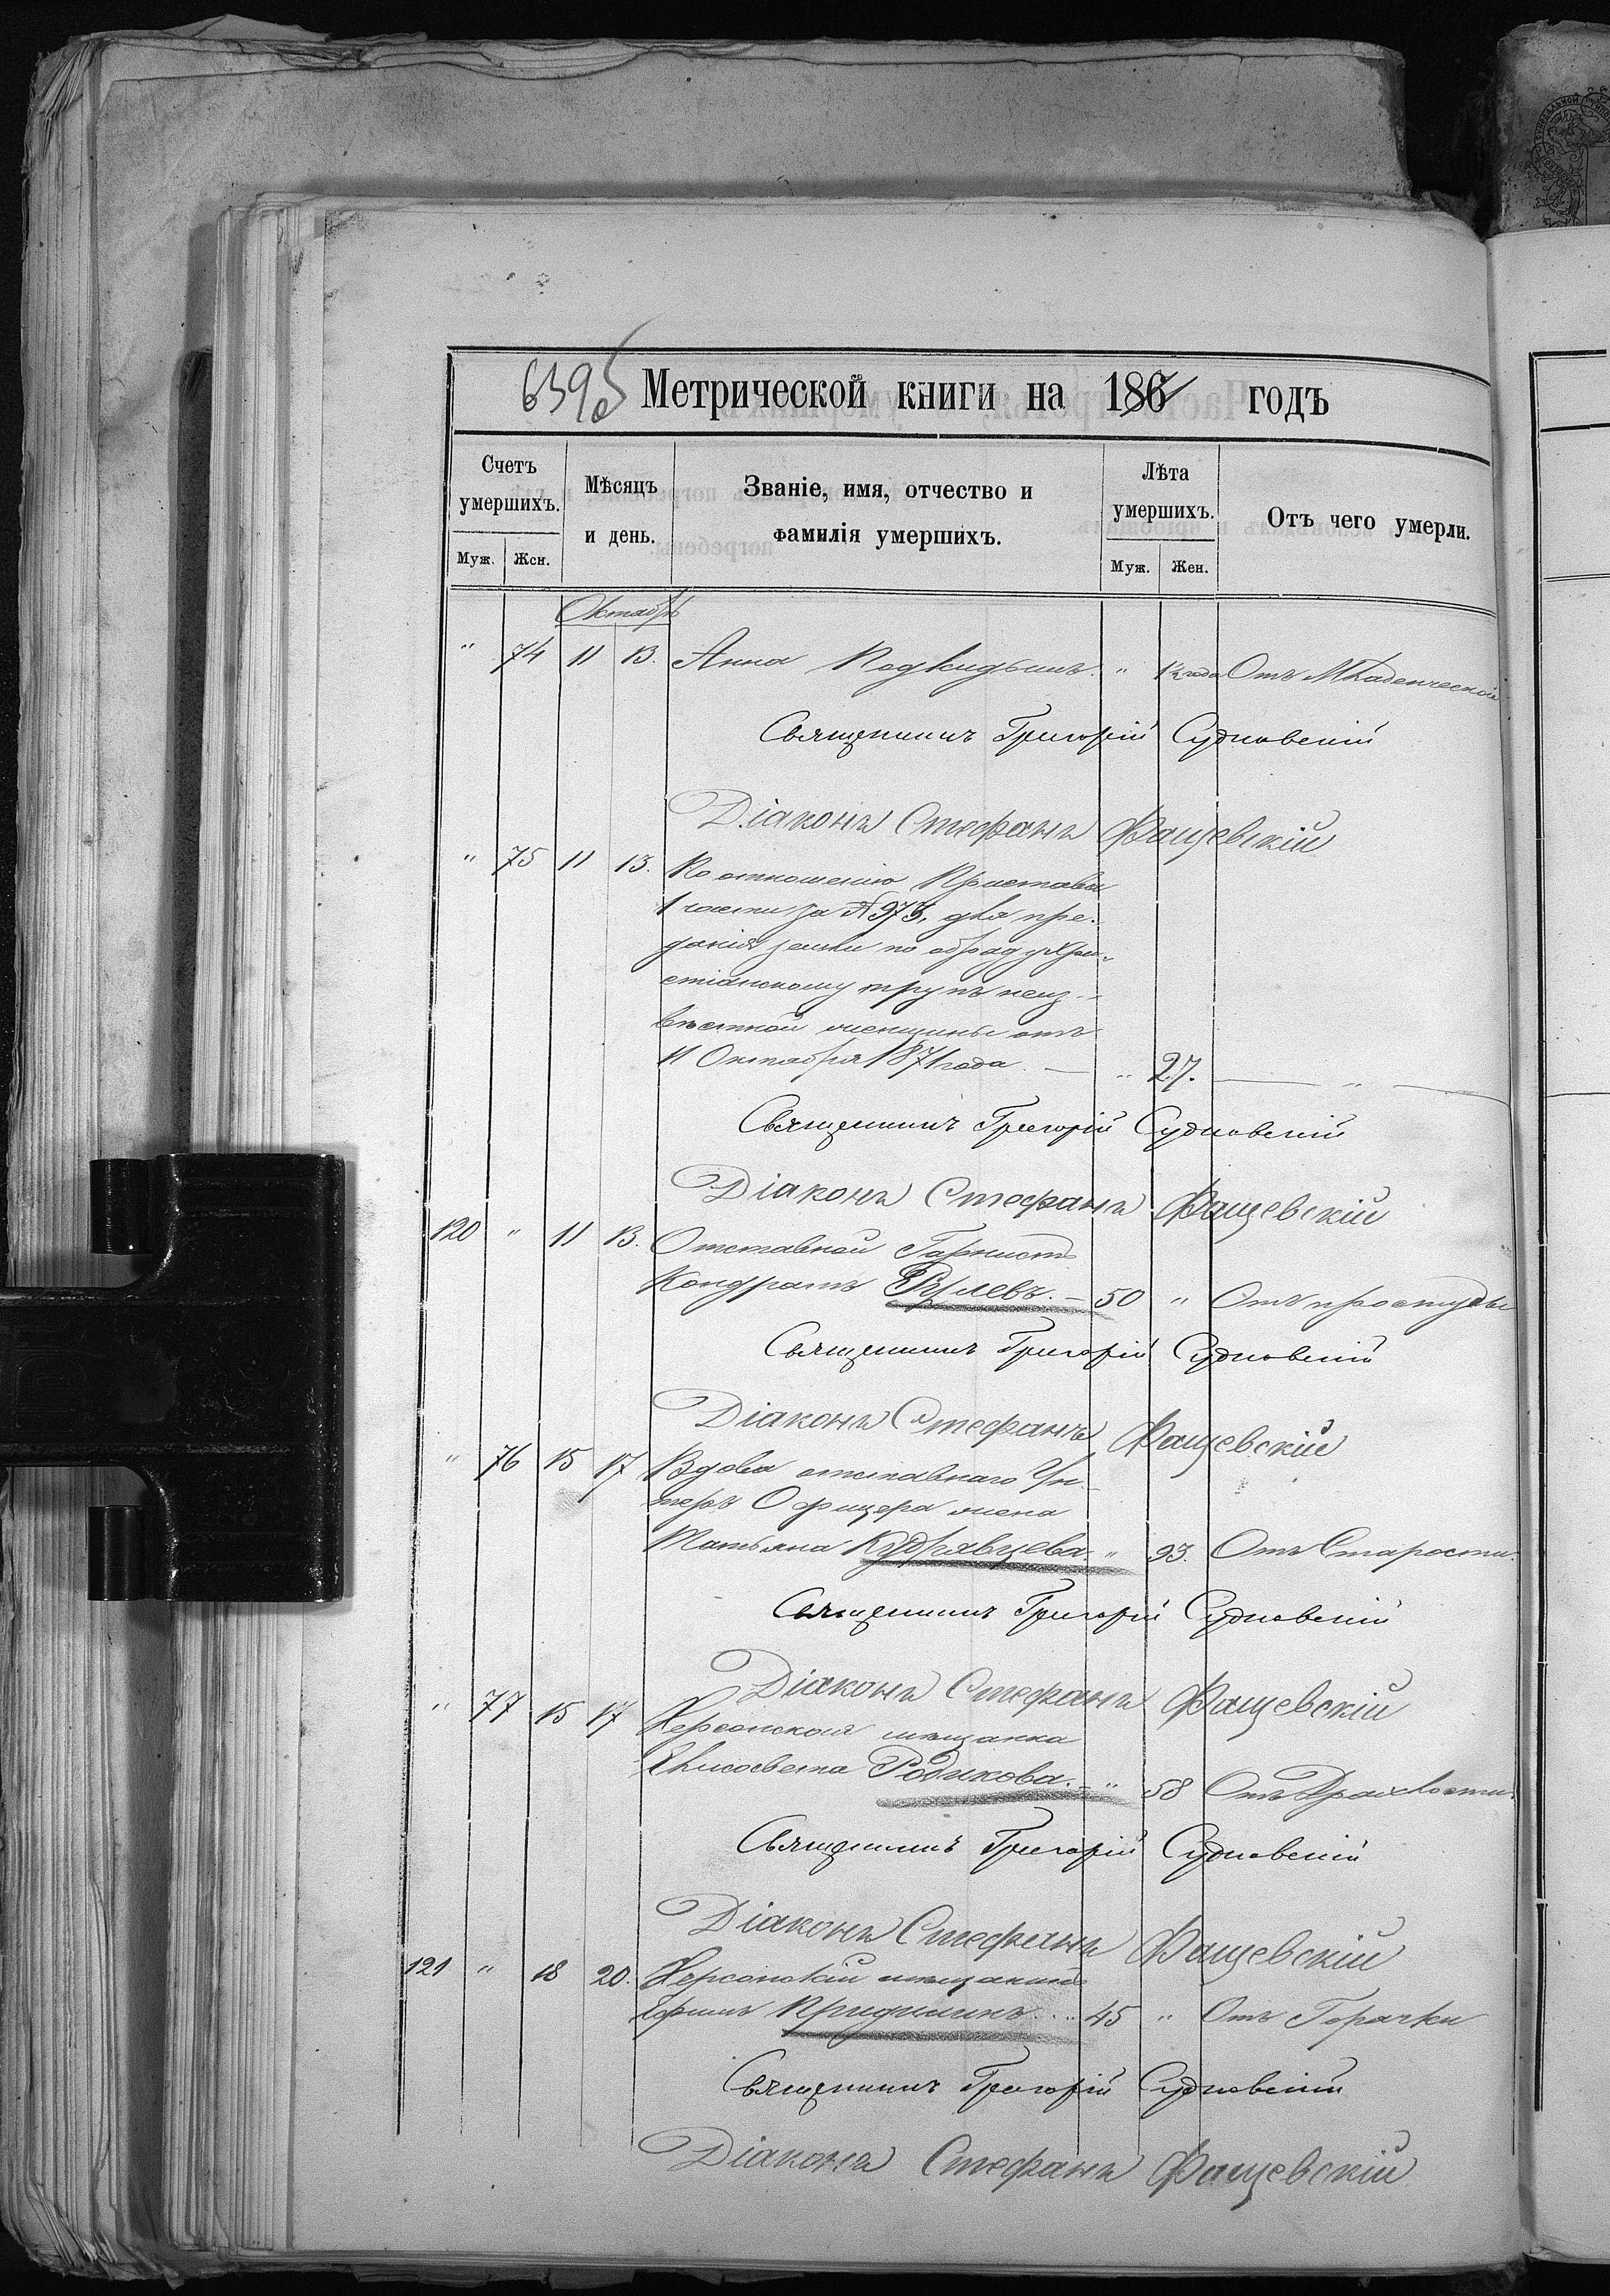 639об Метрической книги на 186 годъ
Счетъ умершихъ.
Мѣсяцъ и день.
Званіе, имя, отчество и фамилія умершихъ.
Лѣта умершихъ.
Отъ чего умерли.
Муж. Жен.
Муж. Жен.
Октябрь
" 74 11 13. Анна Подкидышъ. " 1½ года Отъ Младенческой
Священникъ Григорій Судковскій
Діаконъ Стефанъ Фащевскій
" 75 11 13. По отношенію Пристава
1 части за № 973, для пре-
данія земли по обряду Хри-
стіанскому трупъ неиз-
вѣстной женщины отъ
11 Октября 1871 года. — " 27. — " —
Священникъ Григорій Судковскій
Діаконъ Стефанъ Фащевскій
120 " 11 13. Отставной Горнистъ
Кондратъ Рулевъ. — 50 " Отъ простуды
Священникъ Григорій Судковскій
Діаконъ Стефанъ Фащевскій
" 76 15 17 Вдова отставнаго Ун-
теръ Офицера жена
Татьяна Кудрявцева. " 93. Отъ Старости.
Священникъ Григорій Судковскій
Діаконъ Стефанъ Фащевскій
" 77 15 17 Херсонская мѣщанка
Елисавета Родикова. — " 58 Отъ Дряхлости.
Священникъ Григорій Судковскій
Діаконъ Стефанъ Фащевскій
121 " 18 20. Херсонскій мѣщанинъ
45 " Отъ Горячки
Священникъ Григорій Судковскій
Діаконъ Стефанъ Фащевскій